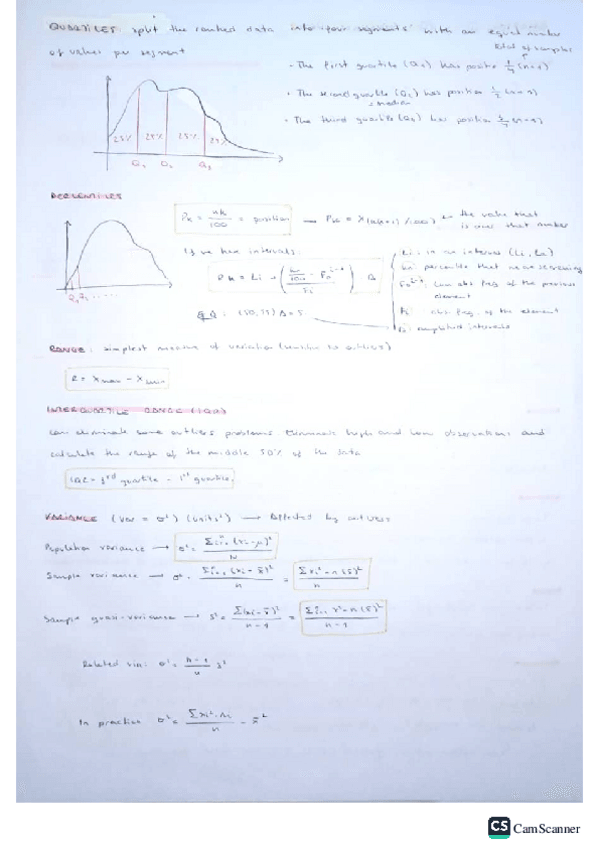 QUARTILES split the ranked data into four segments with an equal number
of values per segment
total of samples
- The first quartile (Q1) has position 1/4 (n+1)
- The second quartile (Q2) has position 1/2 (n+1)
= median
- The third quartile (Q3) has position
25% 25% 25% 25%
Q1 Q2 Q3
PERCENTILES
PK = nk/100 = position → PK = X(k(n+1)/100) ← the value that
is over that number
If we have intervals:
Li: in an interval (Li, Ls)
percentile that we are searching
cum abs freq of the previous
element
fi: abs. freq. of the element
amplitude intervals
RANGE: simplest measure of variation (sensitive to outliers)
R = Xmax - Xmin
INTERQUARTILE RANGE (IQR)
can eliminate some outliers problems. Eliminate high and low observations and
calculate the range of the middle 50% of the data
IQR = 3rd quartile - 1st quartile
VARIANCE (Var = σ²) (units²) → Affected by outliers
Population variance → σ² = Σi=1 (xi-μ)² / N
Sample variance → σ² = Σi=1 (xi-x̄)² / n = Σxi² - n(x̄)² / n
Sample quasi-variance → s² = Σ(xi-x̄)² / n-1 = Σi=1 x² - n(x̄)² / n-1
σ² = n-1/n s²
In practice σ² = Σxi²·ni / n - x̄²
CS CamScanner